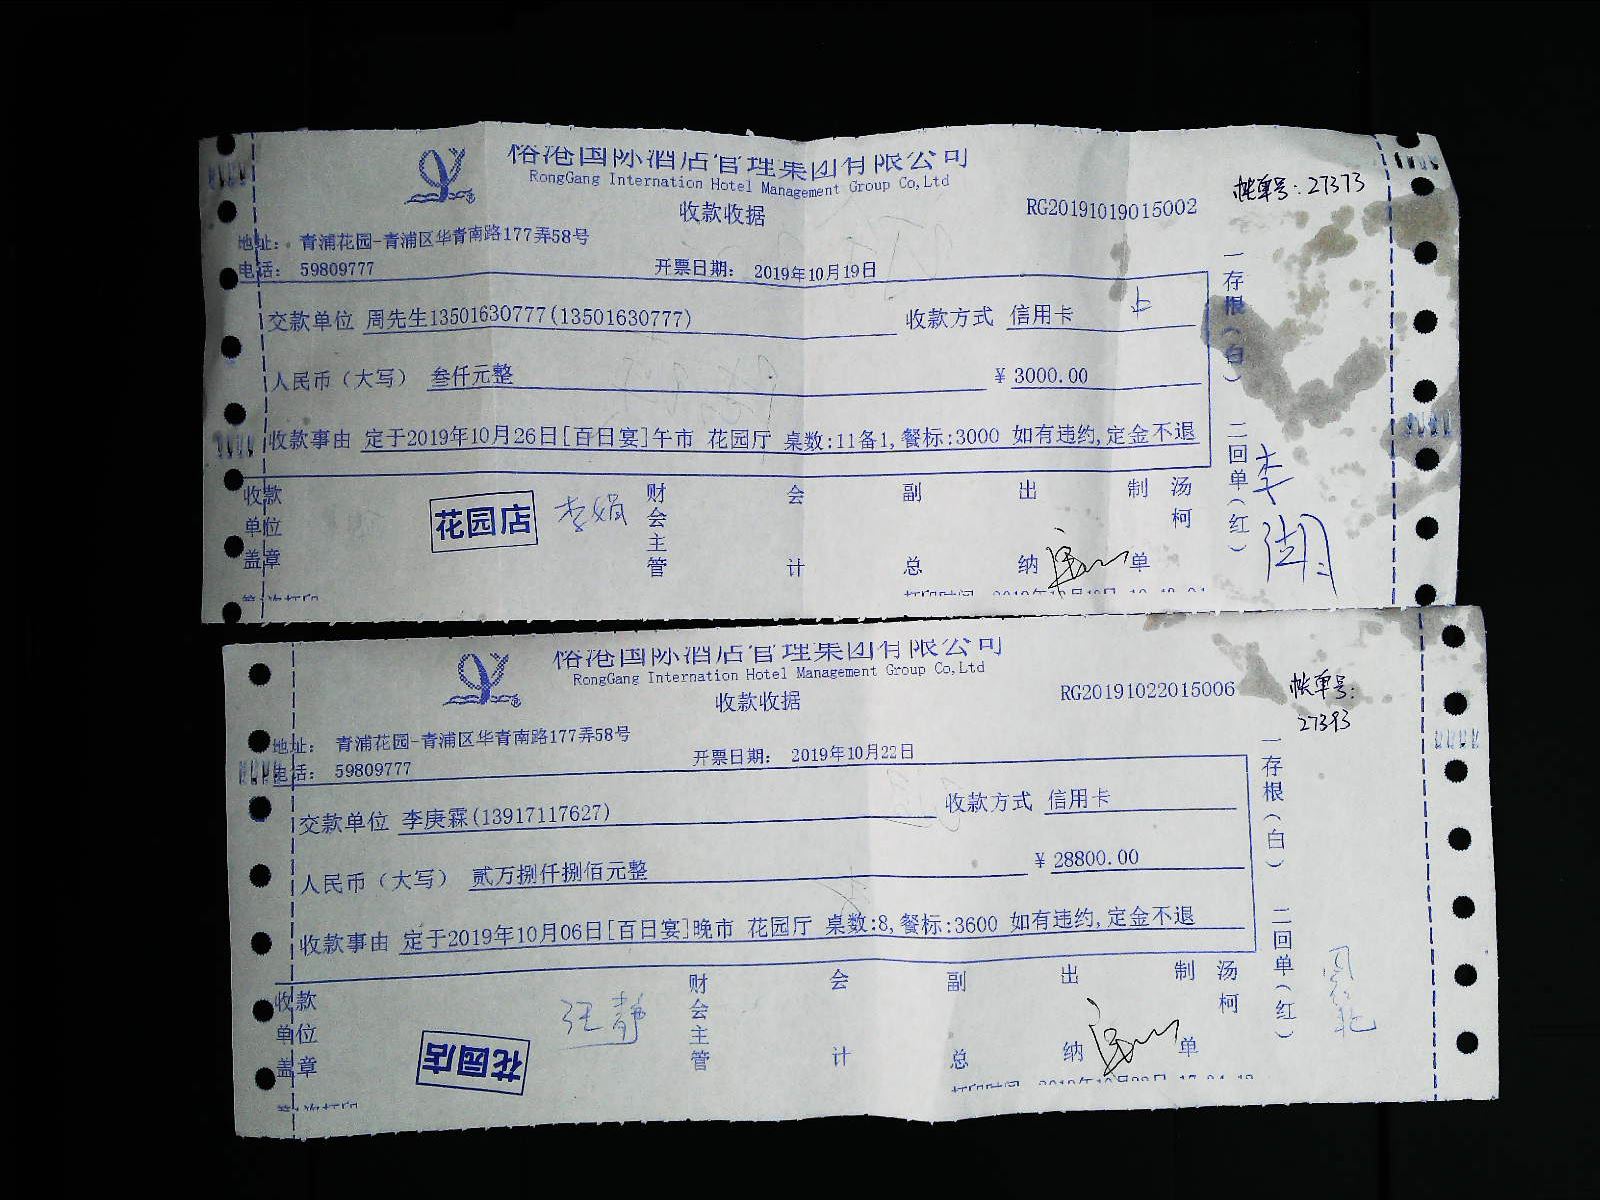 榕港国际酒店管理集团有限公司
RongGang Internation Hotel Management Group Co,Ltd
收款收据
RG20191019015002
帐单号:27373
地址: 青浦花园-青浦区华青南路177弄58号
电话: 59809777
开票日期: 2019年10月19日
交款单位 周先生13501630777(13501630777)
收款方式 信用卡
人民币（大写） 叁仟元整
¥ 3000.00
收款事由 定于2019年10月26日[百日宴]午市 花园厅 桌数:11备1,餐标:3000 如有违约,定金不退
一存根（白） 二回单（红）
收款单位盖章
花园店
李娟
财会主管
会计
副总
出纳
制单
汤柯
榕港国际酒店管理集团有限公司
RongGang Internation Hotel Management Group Co,Ltd
收款收据
RG20191022015006
帐单号:
27393
地址: 青浦花园-青浦区华青南路177弄58号
电话: 59809777
开票日期: 2019年10月22日
交款单位 李庚霖(13917117627)
收款方式 信用卡
人民币（大写） 贰万捌仟捌佰元整
¥ 28800.00
收款事由 定于2019年10月06日[百日宴]晚市 花园厅 桌数:8,餐标:3600 如有违约,定金不退
一存根（白） 二回单（红）
收款单位盖章
花园店
汪静
财会主管
会计
副总
出纳
制单
汤柯